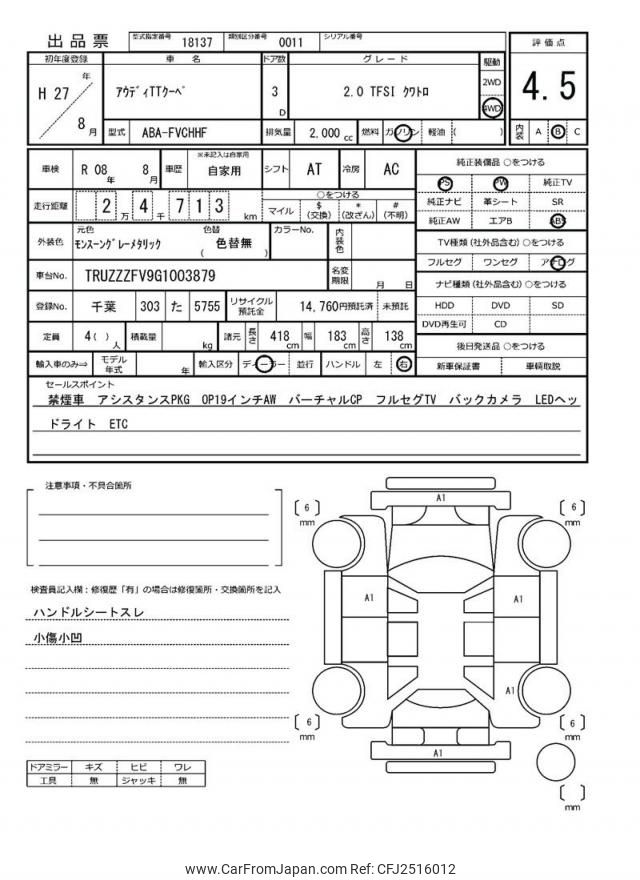 出品票 型式指定番号 18137 類別区分番号 0011 シリアル番号
初年度登録 車 名 ドア数 グレード 駆動 評価点
H 27 年 8 月 ｱｳﾃﾞｨTTｸｰﾍﾟ 3 D 2.0 TFSI ｸﾜﾄﾛ 2WD 4WD 4.5
型式 ABA-FVCHHF 排気量 2,000 cc 燃料 ガソリン 軽油 ( ) 内装 A B C
車検 R 08 年 8 月 車歴 ※未記入は自家用 自家用 シフト AT 冷房 AC
走行距離 2 万 4 千 7 1 3 km ○をつける マイル $ (交換) * (改ざん) # (不明)
外装色 元色 ﾓﾝｽｰﾝｸﾞﾚｰﾒﾀﾘｯｸ 色替 ( 色替無 ) カラーNo. 内装色
車台No. TRUZZZFV9G1003879 名変期限 月 日
登録No. 千葉 303 た 5755 リサイクル預託金 14,760円預託済 未預託
定員 4( ) 人 積載量 kg 諸元 長さ 418 cm 幅 183 cm 高さ 138 cm
輸入車のみ⇒ モデル年式 年 輸入区分 ディーラー 並行 ハンドル 左 右
純正装備品 ○をつける
PS PW 純正TV
純正ナビ 革シート SR
純正AW エアB ABS
TV種類 (社外品含む) ○をつける
フルセグ ワンセグ アナログ
ナビ種類 (社外品含む) ○をつける
HDD DVD SD
DVD再生可 CD
後日発送品 ○をつける
新車保証書 車輌取説
セールスポイント
禁煙車 アシスタンスPKG OP19インチAW バーチャルCP フルセグTV バックカメラ LEDヘッ
ドライト ETC
注意事項・不具合箇所
検査員記入欄：修復歴「有」の場合は修復箇所・交換箇所を記入
ハンドルシートスレ
小傷小凹
ドアミラー キズ ヒビ ワレ
工具 無 ジャッキ 無
A1
[ 6 ] mm [ 6 ] mm
A1 A1
A1
[ 6 ] mm [ 6 ] mm
A1
[ ] mm
www.CarFromJapan.com Ref: CFJ2516012